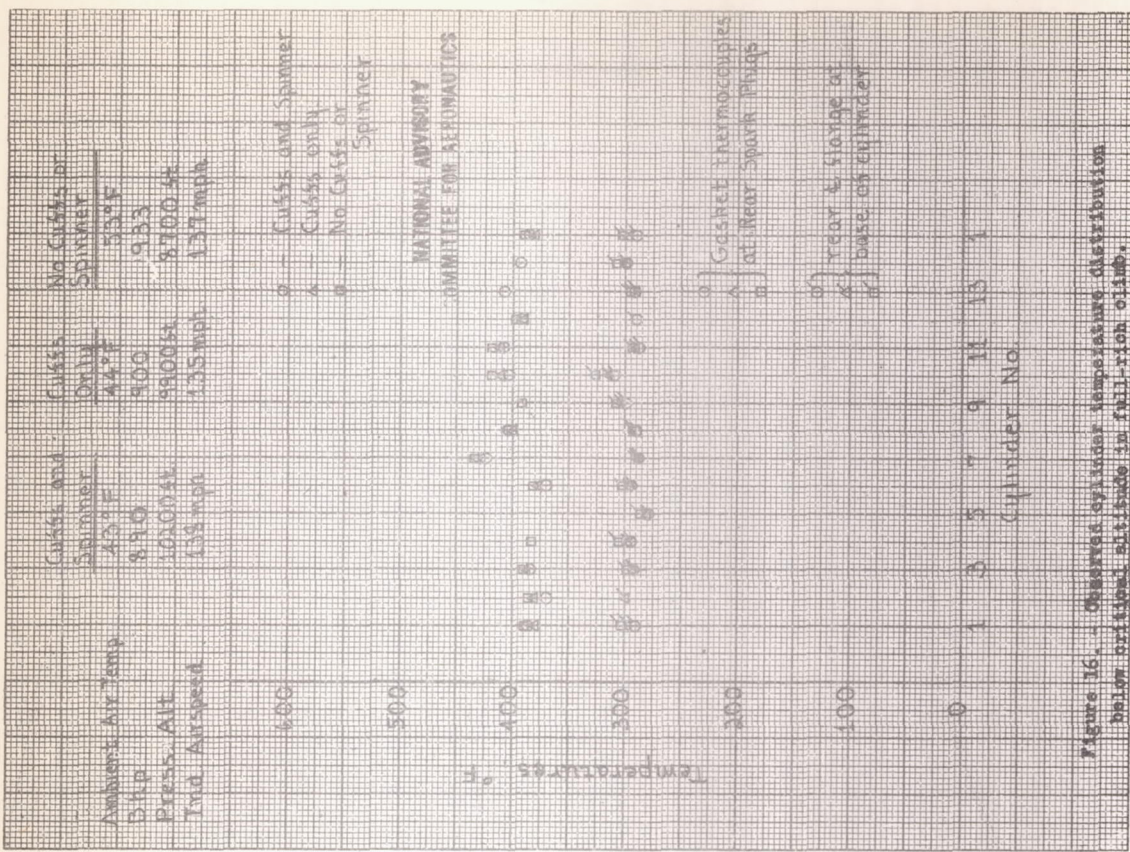 Cuffs and Spinner Cuffs Only No Cuffs or Spinner
Ambient Air Temp 43°F 44°F 53°F
Bhp 890 900 933
Press. Alt. 10200 ft 9900 ft 8700 ft
Ind Airspeed 138 mph 135 mph 137 mph
Cuffs and Spinner
Cuffs only
No Cuffs or
Spinner
NATIONAL ADVISORY
COMMITTEE FOR AERONAUTICS
Gasket thermocouples
at Rear Spark Plugs
rear & flange at
base of cylinder
Temperatures, °F
600
500
400
300
200
100
0
1 3 5 7 9 11 13 1
Cylinder No.
Figure 16. - Observed cylinder temperature distribution
below critical altitude in full-rich climb.